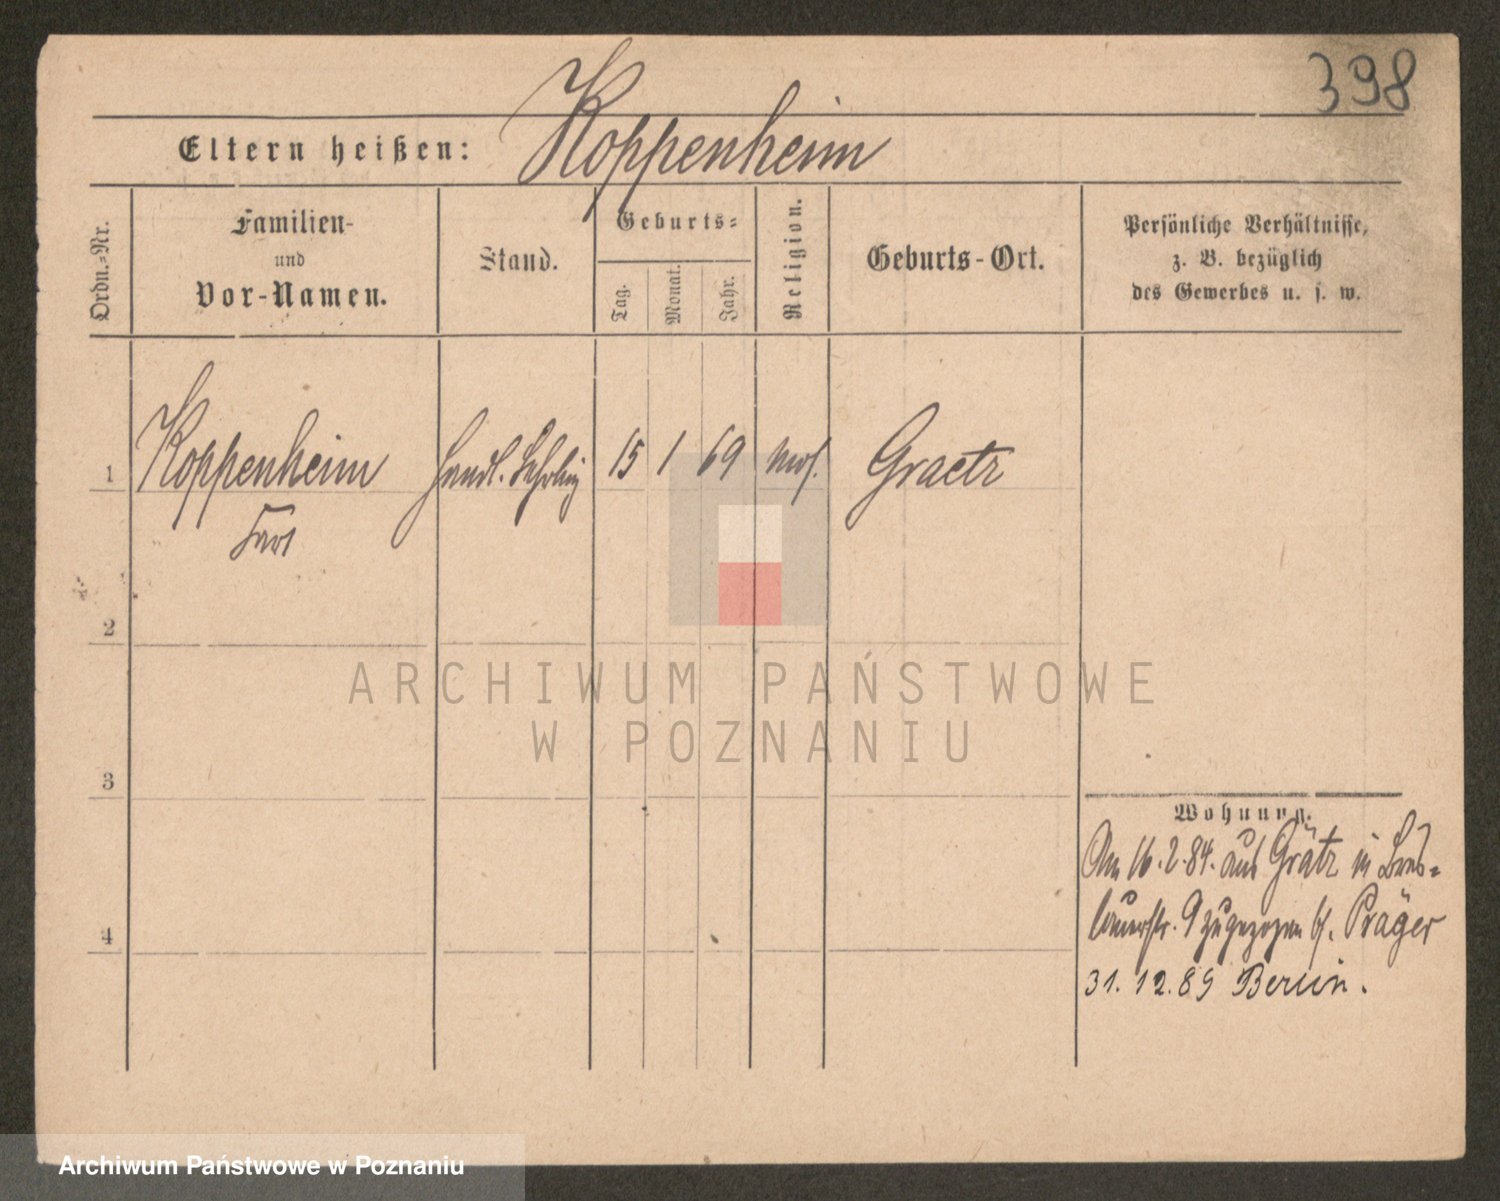 398
Eltern heißen: Koppenheim
Ordn.-Nr.
Familien-
und
Vor-Namen.
Stand.
Geburts-
Tag.
Monat.
Jahr.
Religion.
Geburts-Ort.
Persönliche Verhältnisse,
z. B. bezüglich
des Gewerbes u. s. w.
1 Koppenheim Handl. Lehrling 15 1 69 mos. Graetz
2
ARCHIWUM PAŃSTWOWE
W POZNANIU
3
Wohnung.
Am 16.2.84. aus Grätz in Bres-
lauerstr. 9 zugezogen bei Präger
4
31.12.89 Berlin.
Archiwum Państwowe w Poznaniu